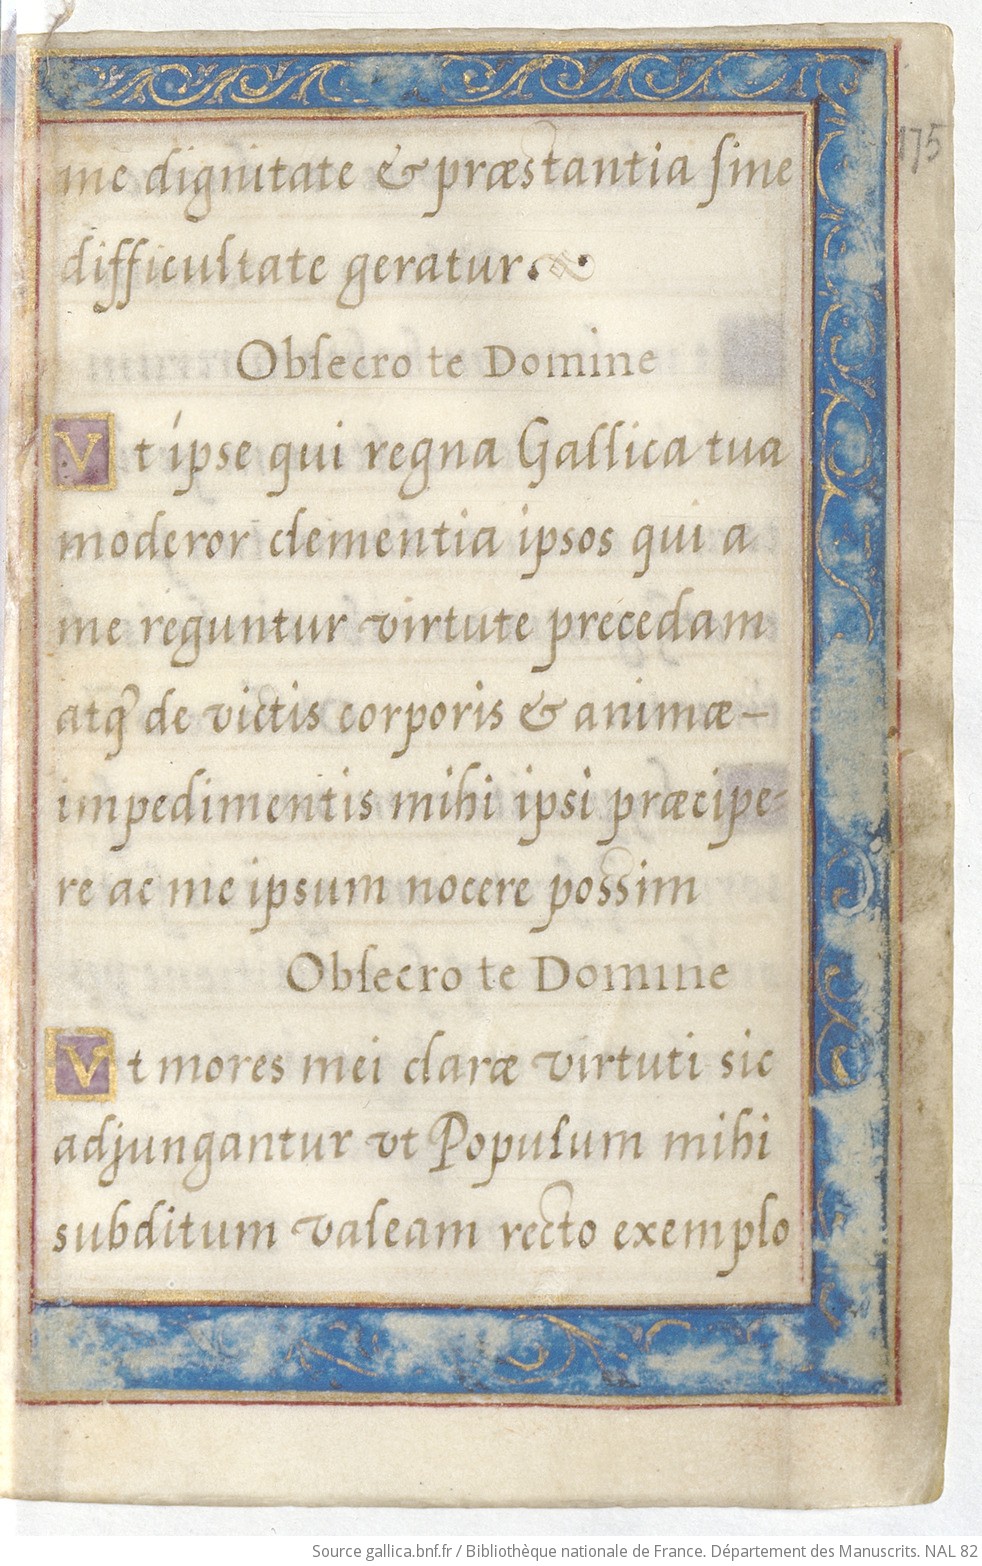 175
me dignitate & præstantia ſine
difficultate geratur.
Obſecro te Domine
Vt ípse qui regna Gallica tua
moderor clementia ipsos qui a
me reguntur virtute precedam
atq̃ de victis corporis & animæ–
impedimentis mihi ipsi præcipe-
re ac me ipsum nocere possim
Obſecro te Domine
Vt mores mei claræ virtuti sic
adjungantur vt Populum mihi
subditum valeam recto exemplo
Source gallica.bnf.fr / Bibliothèque nationale de France. Département des Manuscrits. NAL 82